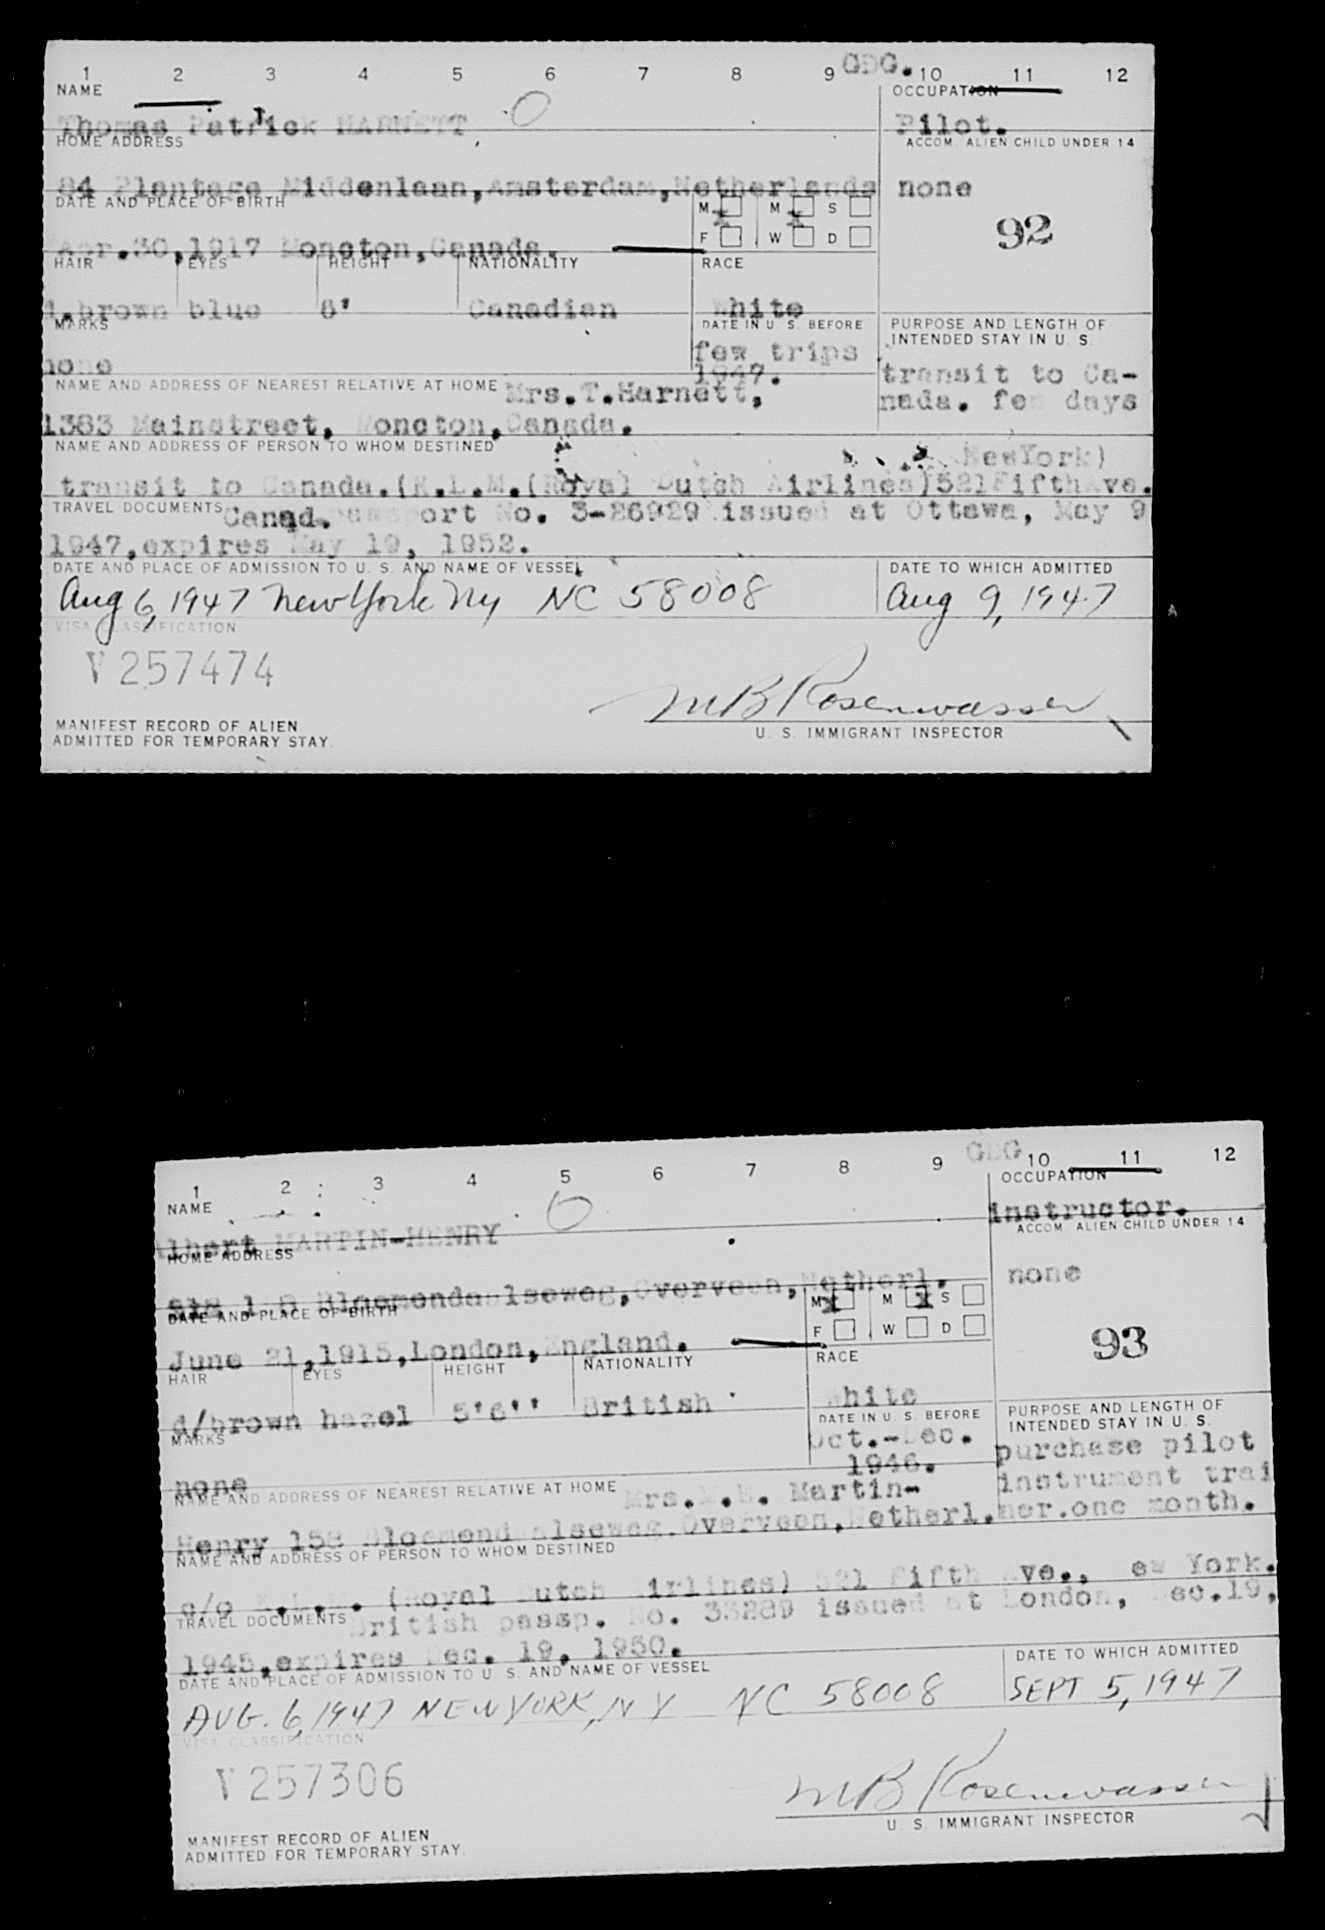 1 2 3 4 5 6 7 8 9 GDG. 10 11 12
NAME OCCUPATION
Thomas Patrick HARNETT Pilot.
HOME ADDRESS ACCOM. ALIEN CHILD UNDER 14
84 Plantage Middenlaan, Amsterdam, Netherlands none
DATE AND PLACE OF BIRTH M M S
92
Apr.30,1917 Moncton,Canada. F W D
HAIR EYES HEIGHT NATIONALITY RACE
d.brown blue 6' Canadian White
MARKS DATE IN U. S. BEFORE PURPOSE AND LENGTH OF
INTENDED STAY IN U. S.
none few trips
1947. transit to Ca-
NAME AND ADDRESS OF NEAREST RELATIVE AT HOME Mrs.T.Harnett, nada. few days
1383 Mainstreet, Moncton,Canada.
NAME AND ADDRESS OF PERSON TO WHOM DESTINED NewYork)
transit to Canada.(K.L.M.(Royal Dutch Airlines)521FifthAve.
TRAVEL DOCUMENTS Canad. passport No. 3-26929 issued at Ottawa, May 9
1947,expires May 19, 1952.
DATE AND PLACE OF ADMISSION TO U. S. AND NAME OF VESSEL DATE TO WHICH ADMITTED
Aug 6, 1947 New York Ny NC 58008 Aug 9, 1947
VISA CLASSIFICATION
V 257474
MB Rosenwasser
MANIFEST RECORD OF ALIEN U. S. IMMIGRANT INSPECTOR
ADMITTED FOR TEMPORARY STAY.
1 2 3 4 5 6 7 8 9 GDG 10 11 12
NAME OCCUPATION
Albert MARTIN-HENRY instructor.
HOME ADDRESS ACCOM. ALIEN CHILD UNDER 14
158 Bloemendaalseweg, Overveen, Netherl. none
DATE AND PLACE OF BIRTH M M S
93
June 21,1915,London,England. F W D
HAIR EYES HEIGHT NATIONALITY RACE
d/brown hazel 5'6'' British White
MARKS DATE IN U. S. BEFORE PURPOSE AND LENGTH OF
INTENDED STAY IN U. S.
none Oct.-Dec.
1946. purchase pilot
NAME AND ADDRESS OF NEAREST RELATIVE AT HOME Mrs. Martin- instrument trai
Henry 158 Bloemendaalseweg.Overveen,Netherl. ner.one month.
NAME AND ADDRESS OF PERSON TO WHOM DESTINED
c/o K.L.M. (Royal Dutch Airlines) 521 Fifth Ave., New York.
TRAVEL DOCUMENTS British passp. No. 33289 issued at London, Dec.19,
1945,expires Dec. 19, 1950.
DATE AND PLACE OF ADMISSION TO U. S. AND NAME OF VESSEL DATE TO WHICH ADMITTED
AUG. 6, 1947 NEW YORK, NY NC 58008 SEPT 5, 1947
VISA CLASSIFICATION
V 257306
MB Rosenwasser
MANIFEST RECORD OF ALIEN U. S. IMMIGRANT INSPECTOR
ADMITTED FOR TEMPORARY STAY.